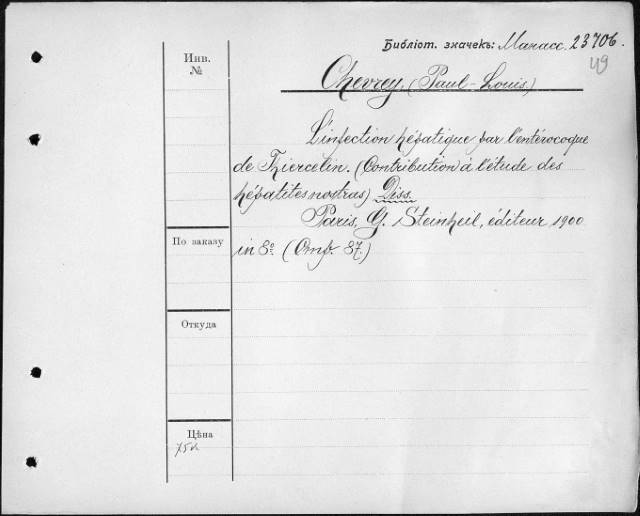 Библіот. значекъ: Манасс. 23706.
49
Инв.
№
Chevrey, (Paul-Louis,)
L'infection hépatique par l'entérocoque
de Thiercelin. (Contribution à l'étude des
hépatites nostras) Diss.
Paris, G. Steinheil, éditeur 1900
По заказу
in 8º. (Стр. 87.)
Откуда
Цѣна
75к